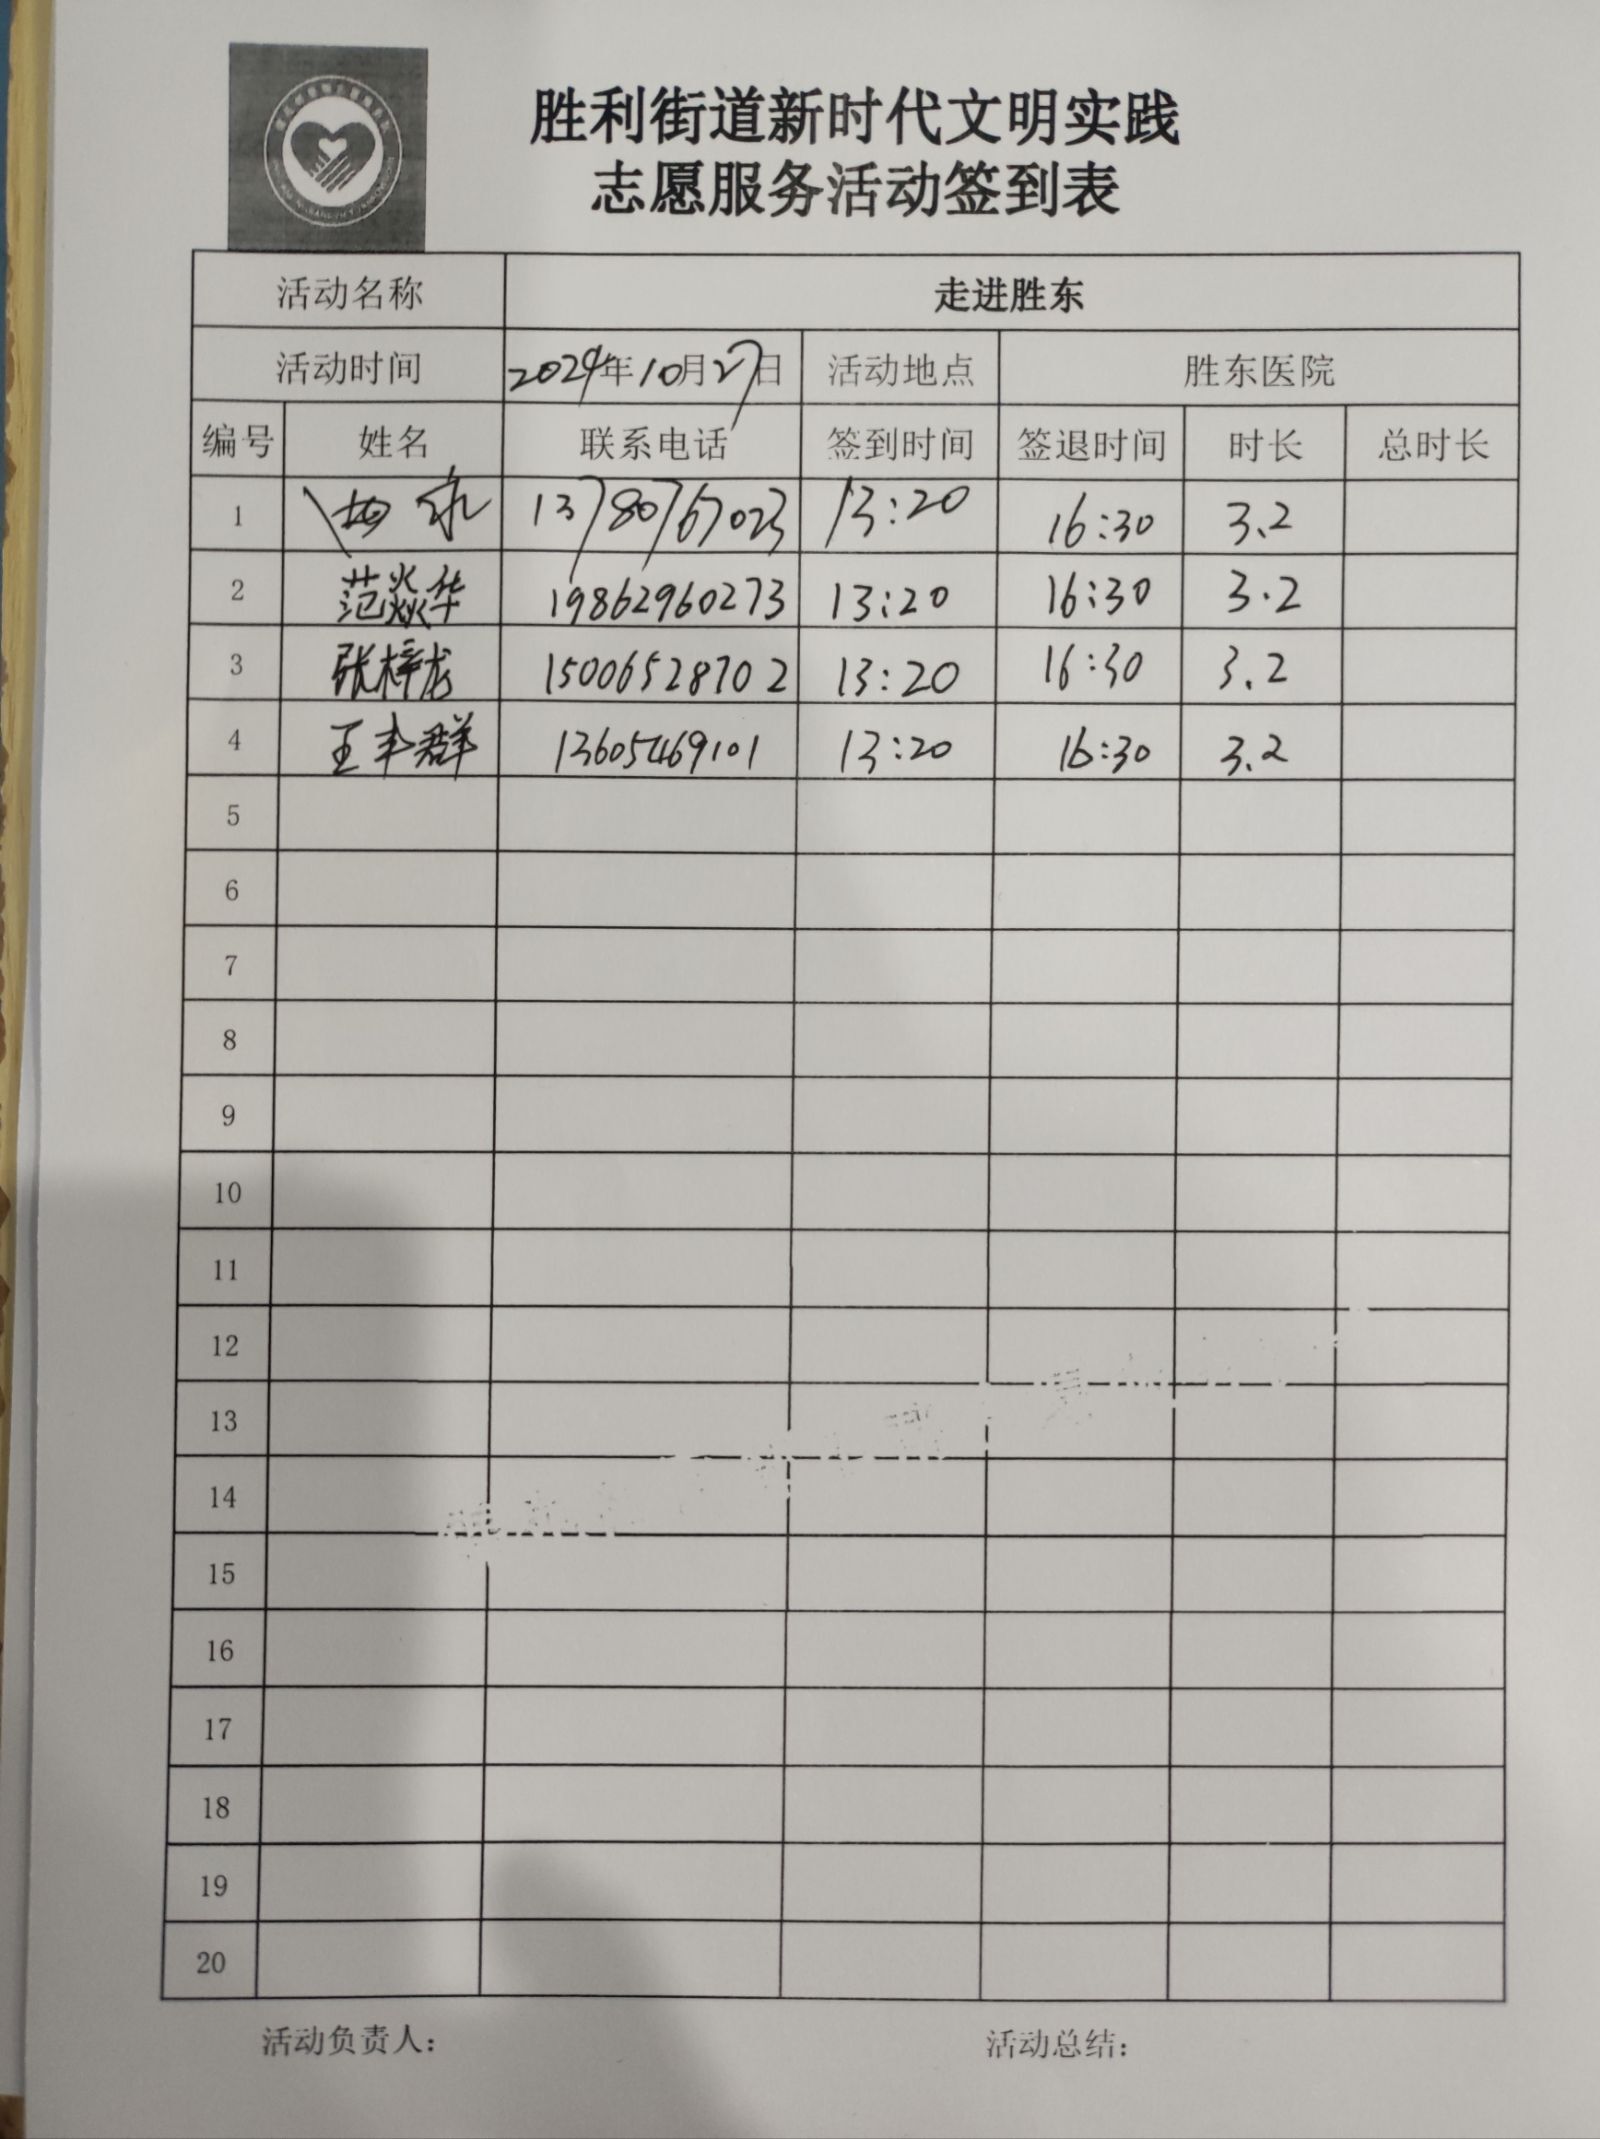 胜利街道新时代文明实践
志愿服务活动签到表
活动名称 走进胜东
活动时间 2024年10月27日 活动地点 胜东医院
编号 姓名 联系电话 签到时间 签退时间 时长 总时长
1 13780767023 13:20 16:30 3.2
2 范焱华 19862960273 13:20 16:30 3.2
3 张梓龙 15006528702 13:20 16:30 3.2
4 王丰群 13605469101 13:20 16:30 3.2
5
6
7
8
9
10
11
12
13
14
15
16
17
18
19
20
活动负责人: 活动总结: